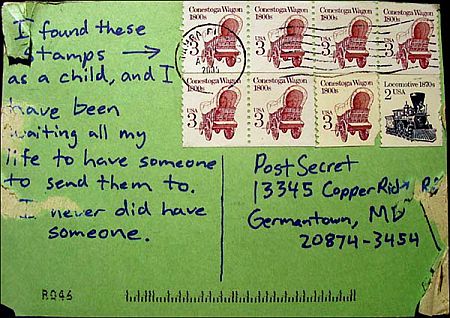 I found these
stamps →
as a child, and I
have been
waiting all my
life to have someone
to send them to.
I never did have
someone.
Conestoga Wagon
1800s
3 USA
Conestoga Wagon
1800s
3 USA
Conestoga Wagon
1800s
3 USA
Conestoga Wagon
1800s
3 USA
Conestoga Wagon
1800s
3 USA
Conestoga Wagon
1800s
3 USA
Conestoga Wagon
1800s
3 USA
Locomotive 1870s
2 USA
Post Secret
13345 Copper
Germantown, MD
20874-3454